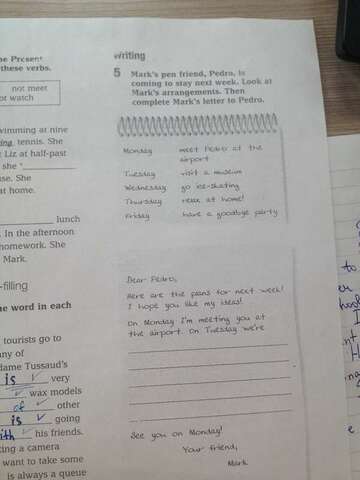 he Present
these verbs.
not meet
ot watch
wimming at nine
ing tennis. She
Liz at half-past
she
se. She
at home.
lunch
. In the afternoon
homework. She
Mark.
-filling
ne word in each
tourists go to
any of
dame Tussaud's
is very
wax models
of other
is going
with his friends.
ting a camera
want to take some
is always a queue
Writing
5 Mark's pen friend, Pedro, is
coming to stay next week. Look at
Mark's arrangements. Then
complete Mark's letter to Pedro.
Monday meet Pedro at the
airport
Tuesday visit a museum
Wednesday go ice-skating
Thursday relax at home!
Friday have a goodbye party
Dear Pedro,
Here are the pans for next week!
I hope you like my ideas!
On Monday I'm meeting you at
the airport. On Tuesday we're
See you on Monday!
Your friend,
Mark